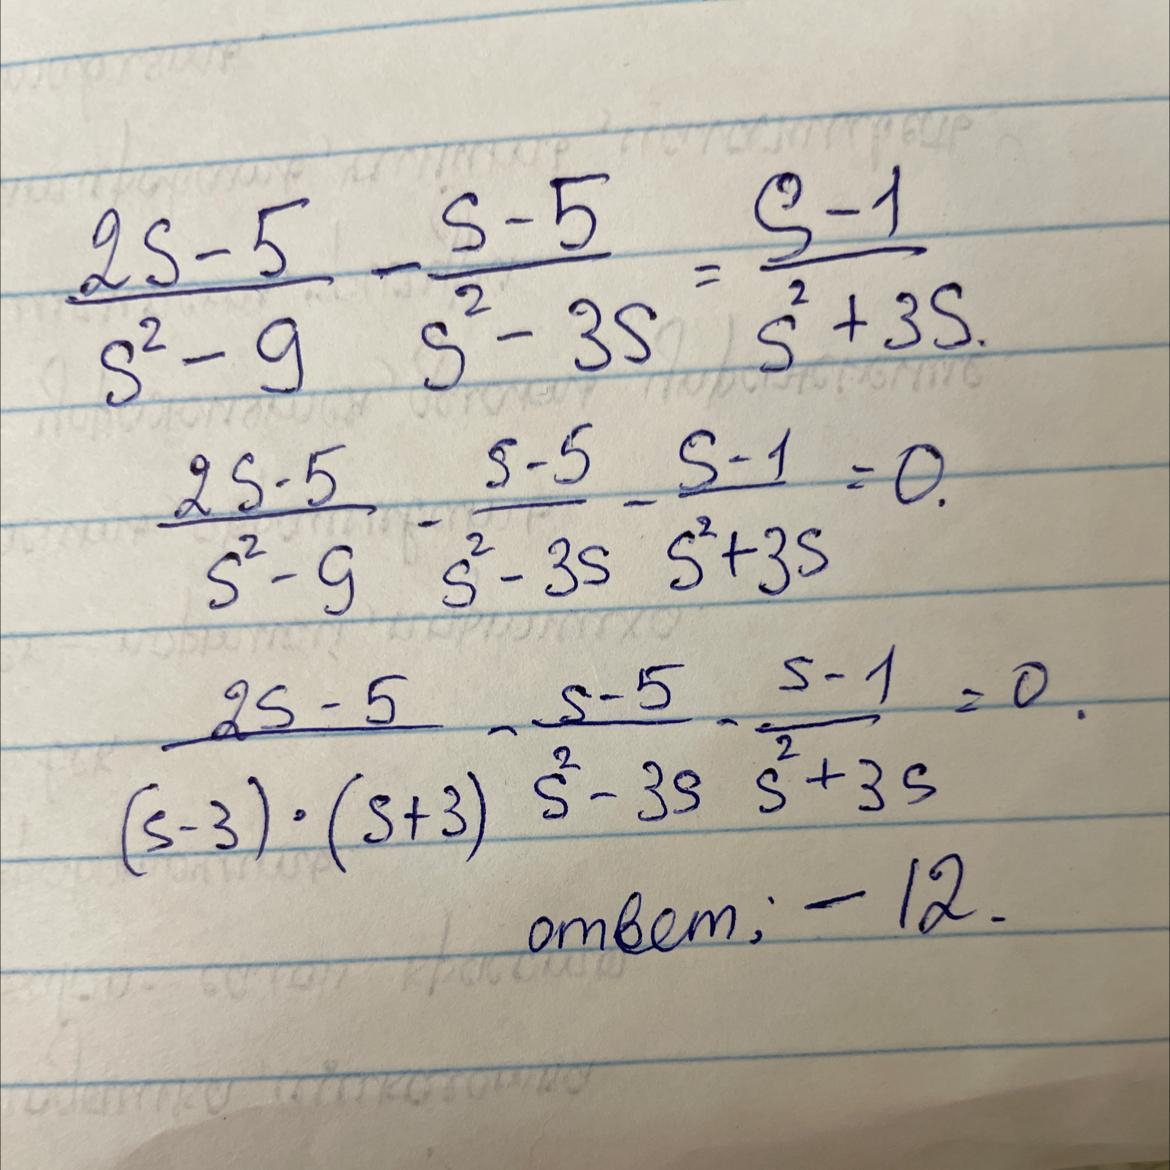 (2s-5)/(s²-9) - (s-5)/(s²-3s) = (s-1)/(s²+3s).
(2s-5)/(s²-9) - (s-5)/(s²-3s) - (s-1)/(s²+3s) = 0.
(2s-5)/((s-3)·(s+3)) - (s-5)/(s²-3s) - (s-1)/(s²+3s) = 0.
ответ; - 12.